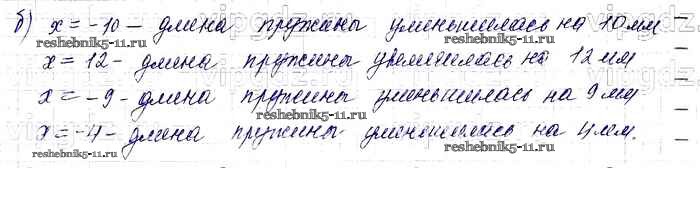 б) x = -10 - длина пружины уменьшилась на 10 мм
reshebnik5-11.ru
x = 12 - длина пружины увеличилась на 12 мм
x = -9 - длина пружины уменьшилась на 9 мм
reshebnik5-11.ru reshebnik5-11.ru
x = -4 - длина пружины уменьшилась на 4 мм.
reshebnik5-11.ru reshebnik5-11.ru